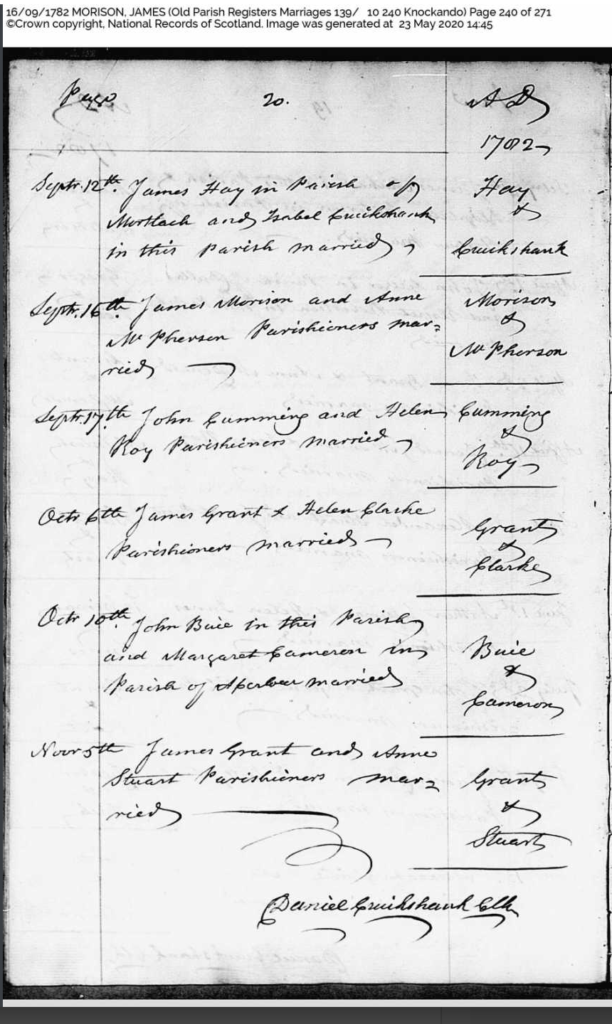 16/09/1782 MORISON, JAMES (Old Parish Registers Marriages 139/ 10 240 Knockando) Page 240 of 271
©Crown copyright, National Records of Scotland. Image was generated at 23 May 2020 14:45
Page 20. A D
1782
Septr. 12th. James Hay in Parish of
Mortlach and Isabel Cruikshank
in this Parish married
Hay
&
Cruikshank
Septr. 16th James Morison and Anne
Mc Pherson Parishioners mar=
ried
Morison
&
Mc Pherson
Septr. 17th John Cumming and Helen
Roy Parishioners married
Cumming
&
Roy
Octr 6th James Grant & Helen Clarke
Parishioners married
Grant
&
Clarke
Octr 10th John Buie in this Parish
and Margaret Cameron in
Parish of Aberlour married
Buie
&
Cameron
Novr 5th James Grant and Anne
Stuart Parishioners mar=
ried
Grant
&
Stuart
Daniel Cruikshank Clk